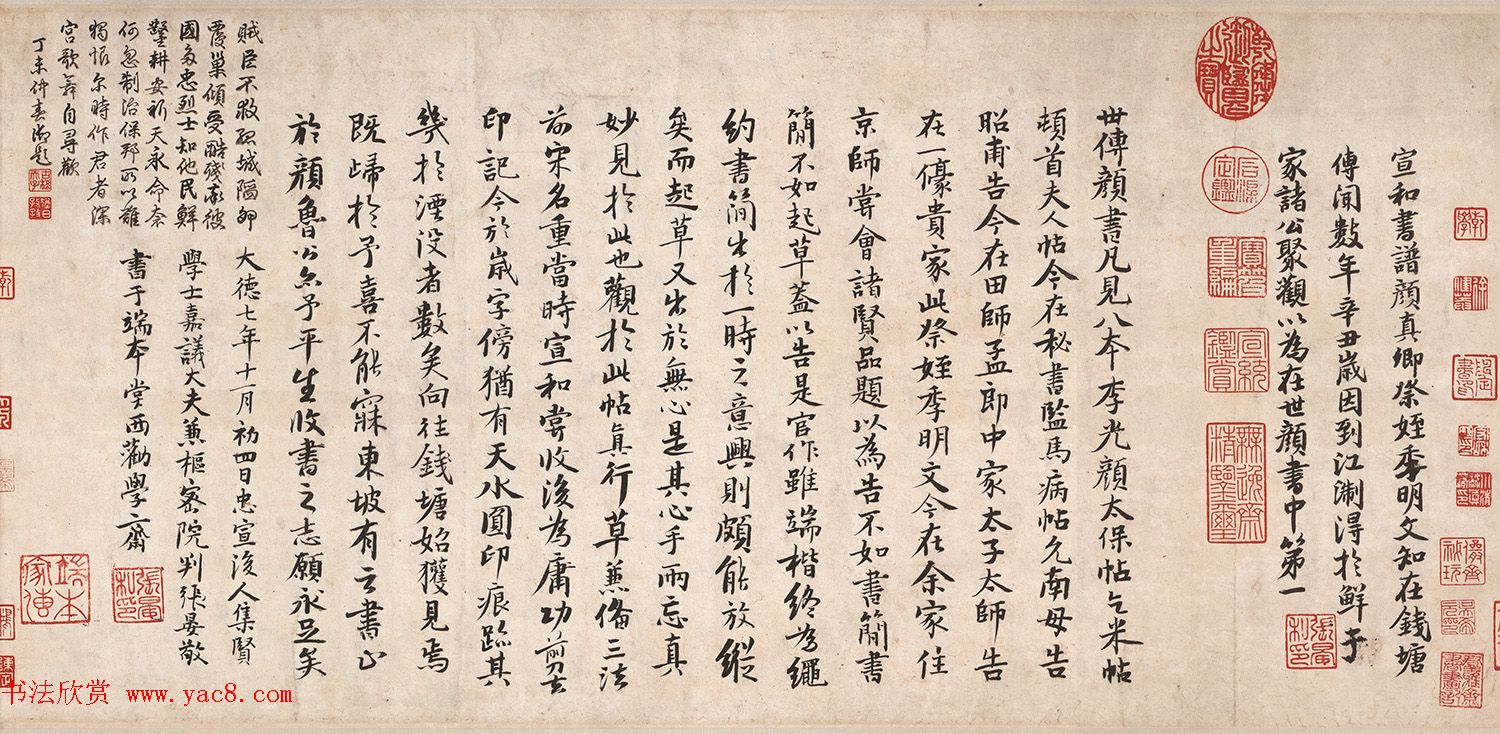 宣和書譜顔真卿祭姪季明文知在錢塘
傳聞數年辛丑歲因到江淛得於鮮于
家諸公聚觀以為在世顔書中第一
世傳顔書凡見八本李光顔太保帖乞米帖
頓首夫人帖今在秘書監馬病帖允南母告
昭甫告今在田師孟郎中家太子太師告
在一豪貴家此祭姪季明文今在余家住
京師嘗會諸賢品題以為告不如書簡書
簡不如起草蓋以告是官作雖端楷終為繩
約書簡出於一時之意興則頗能放縱
矣而起草又出於無心是其心手兩忘真
妙見於此也觀於此帖真行草兼備三法
前宋名重當時宣和嘗收後為庸功剪去
印記今於嵗字傍猶有天水圓印痕跡其
幾於湮没者數矣向往錢塘始獲見焉
既歸於予喜不能寐東坡有云書止
於顔魯公亦予平生收書之志願永足矣
大德七年十一月初四日忠宣後人集賢
學士嘉議大夫兼樞密院判張晏敬
書于端本堂西勸學齋
賊臣不救孤城陷卵
覆巢傾受酷殘彼
國多忠烈士知他民鮮
鑿耕安祈天永命奈
何忽制治保邦所以難
獨恨尒時作君者深
宮歌舞自尋歡
丁未仲春御題
乾隆御覽之寶
石渠定鑑
寶笈重編
宣統鑑賞
無逸齋精鑒璽
張晏私印
張晏私印
端本家傳
书法欣赏 www.yac8.com